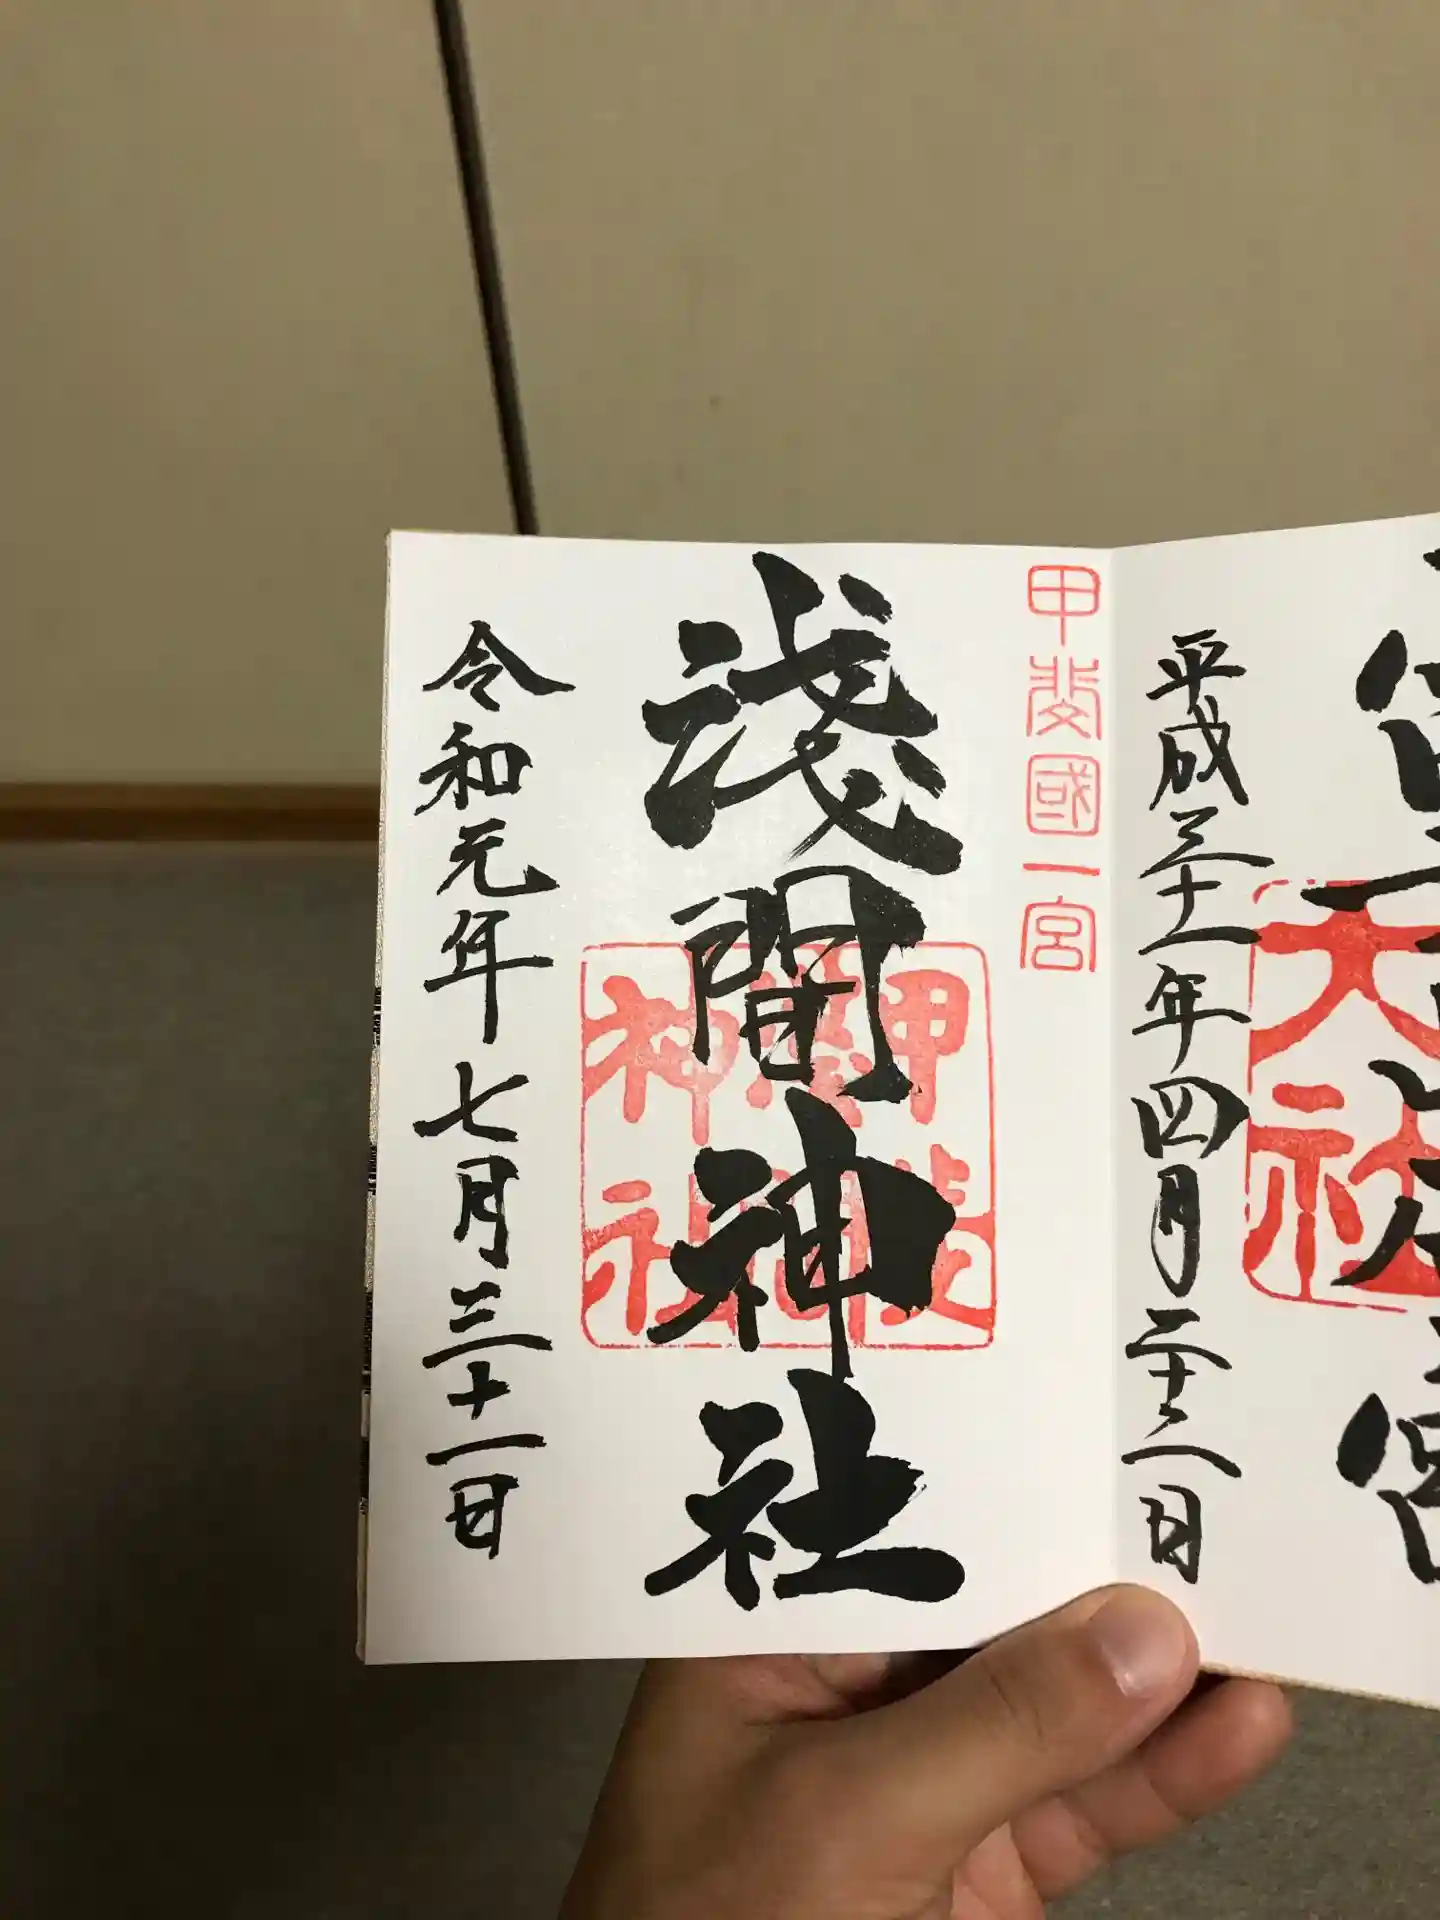 平成三十一年四月二十二日
大社
甲斐國一宮
淺間神社
甲斐
神社
令和元年七月三十一日